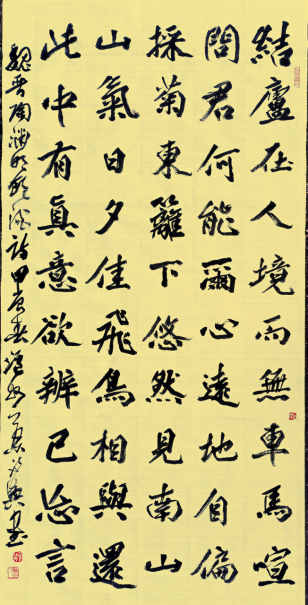 結廬在人境而無車馬喧
問君何能爾心遠地自偏
採菊東籬下悠然見南山
山氣日夕佳飛鳥相與還
此中有眞意欲辨已忘言
魏晋陶渊明 詩 甲 春 書